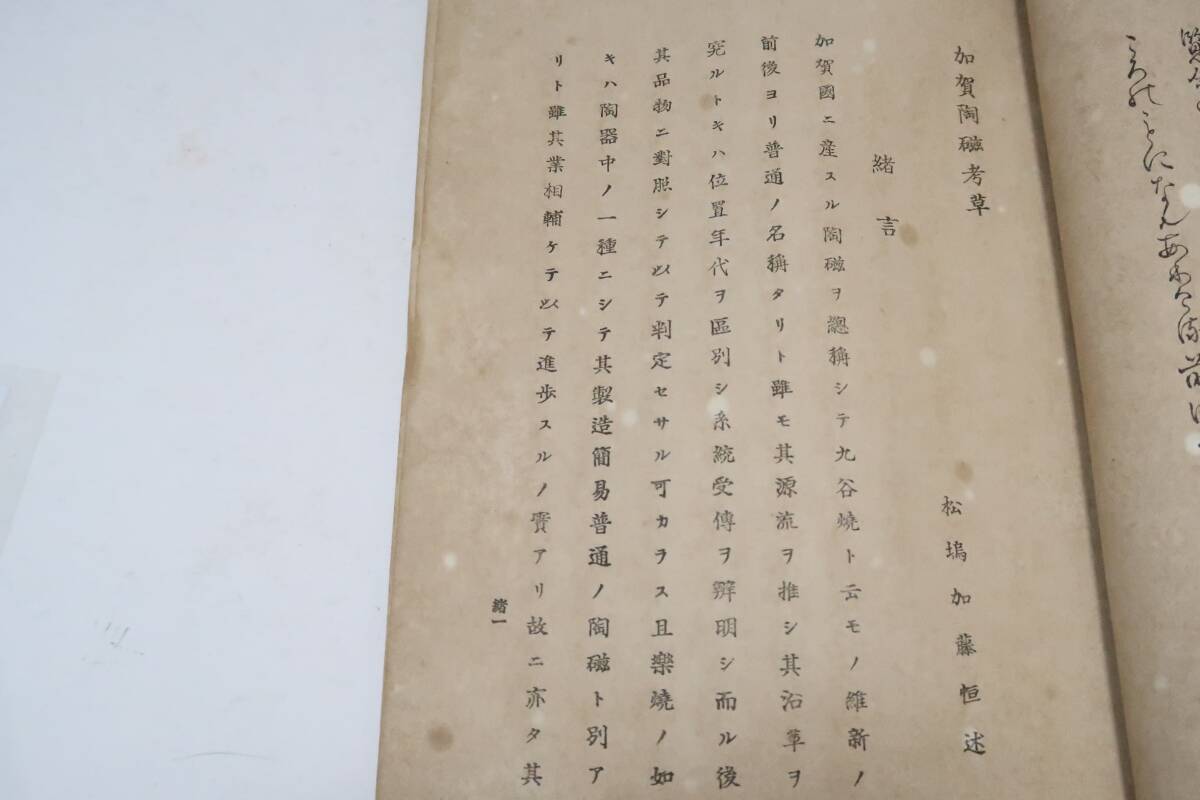 加賀陶磁考草
松塢加藤恒述
緒言
加賀國ニ産スル陶磁ヲ總稱シテ九谷燒ト云モノ維新ノ
前後ヨリ普通ノ名稱タリト雖モ其源流ヲ推シ其沿革ヲ
究ルトキハ位置年代ヲ區別シ系統受傳ヲ辨明シ而ル後
其品物ニ對照シテ以テ判定セサル可カラス且樂燒ノ如
キハ陶器中ノ一種ニシテ其製造簡易普通ノ陶磁ト別ア
リト雖其業相輔ケテ以テ進歩スルノ實アリ故ニ亦タ其
緒一